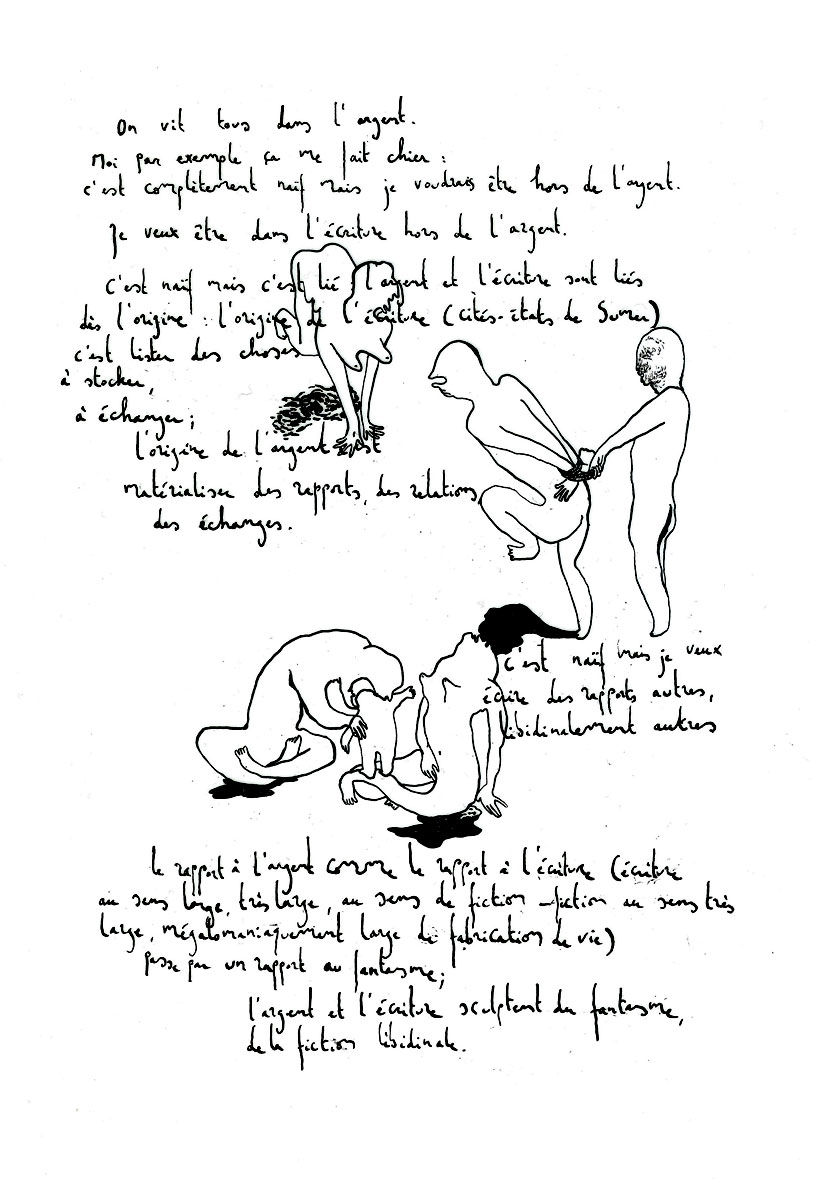 On vit tous dans l'argent.
Moi par exemple ça me fait chier :
c'est complètement naïf mais je voudrais être hors de l'argent.
Je veux être dans l'écriture hors de l'argent.
C'est naïf mais c'est lié l'argent et l'écriture sont liés
dès l'origine : l'origine de l'écriture (cités-états de Sumer)
c'est lister des choses
à stocker,
à échanger ;
l'origine de l'argent c'est
matérialiser des rapports, des relations,
des échanges.
C'est naïf mais je veux
écrire des rapports autres,
libidinalement autres
le rapport à l'argent comme le rapport à l'écriture (écriture
au sens large, très large, au sens de fiction – fiction au sens très
large, mégalomaniaquement large de fabrication de vie)
passe par un rapport au fantasme ;
l'argent et l'écriture sculptent du fantasme,
de la fiction libidinale.